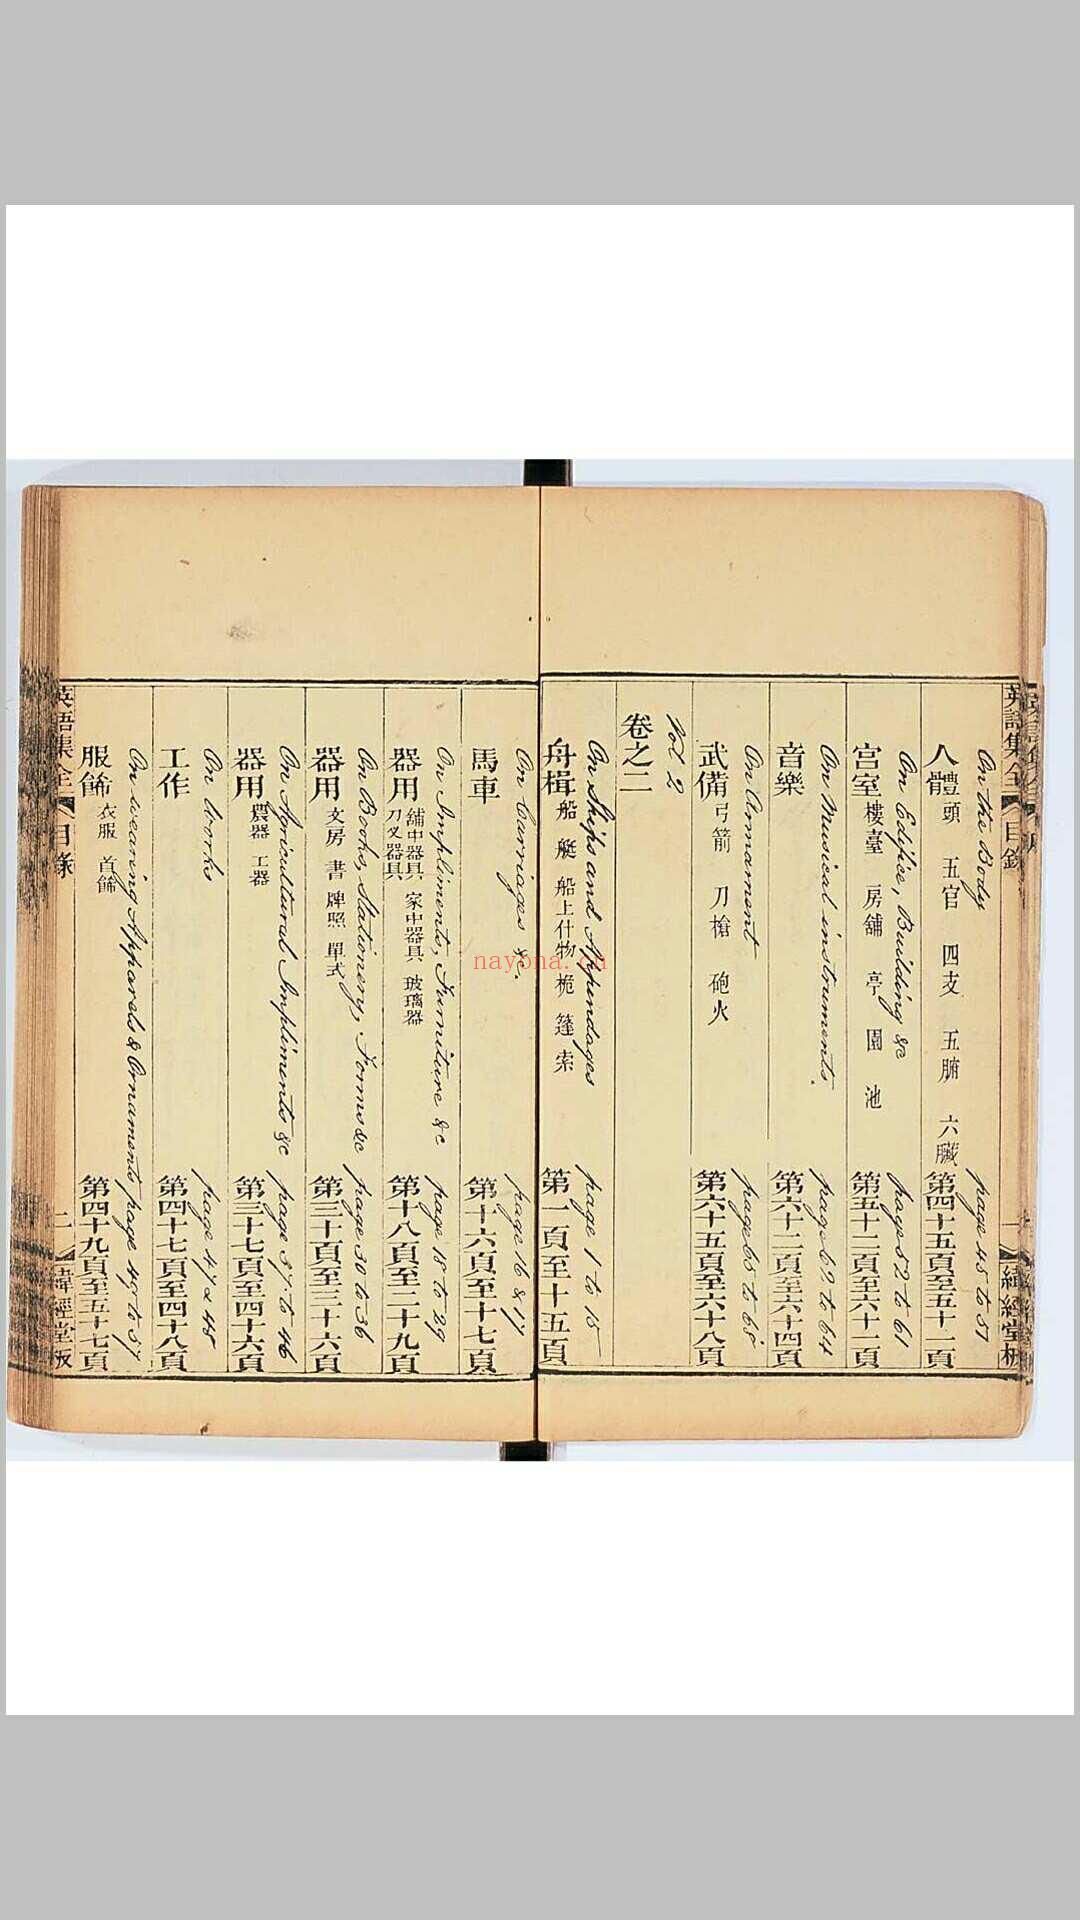 英語集全 目錄 一 緯經堂板
On the Body page 45 to 51
人體 頭 五官 四支 五腑 六臟 第四十五頁至五十一頁
On Edifice, Building &c page 52 to 61
宮室 樓臺 房舖 亭 園 池 第五十二頁至六十一頁
On Musical instruments. page 62 to 64
音樂 第六十二頁至六十四頁
On Armament page 65 to 68
武備 弓箭 刀槍 砲火 第六十五頁至六十八頁
Vol 2
卷之二
On Ships and Appendages page 1 to 15
舟楫 船 艇 船上什物 桅 篷 索 第一頁至十五頁
On Carriages &c. page 16 & 17
馬車 第十六頁至十七頁
On Impliments, Furniture &c page 18 to 29
器用 舖中器具 家中器具 玻璃器 刀叉器具 第十八頁至二十九頁
On Books, Stationery, Forms &c page 30 to 36
器用 文房 書 牌照 單式 第三十頁至三十六頁
On Agricultural Impliments &c page 37 to 46
器用 農器 工器 第三十七頁至四十六頁
On Works page 47 & 48
工作 第四十七頁至四十八頁
On wearing Apparels & Ornaments page 49 to 57
服飾 衣服 首飾 第四十九頁至五十七頁
英語集全 目錄 二 緯經堂板
nayona.cn